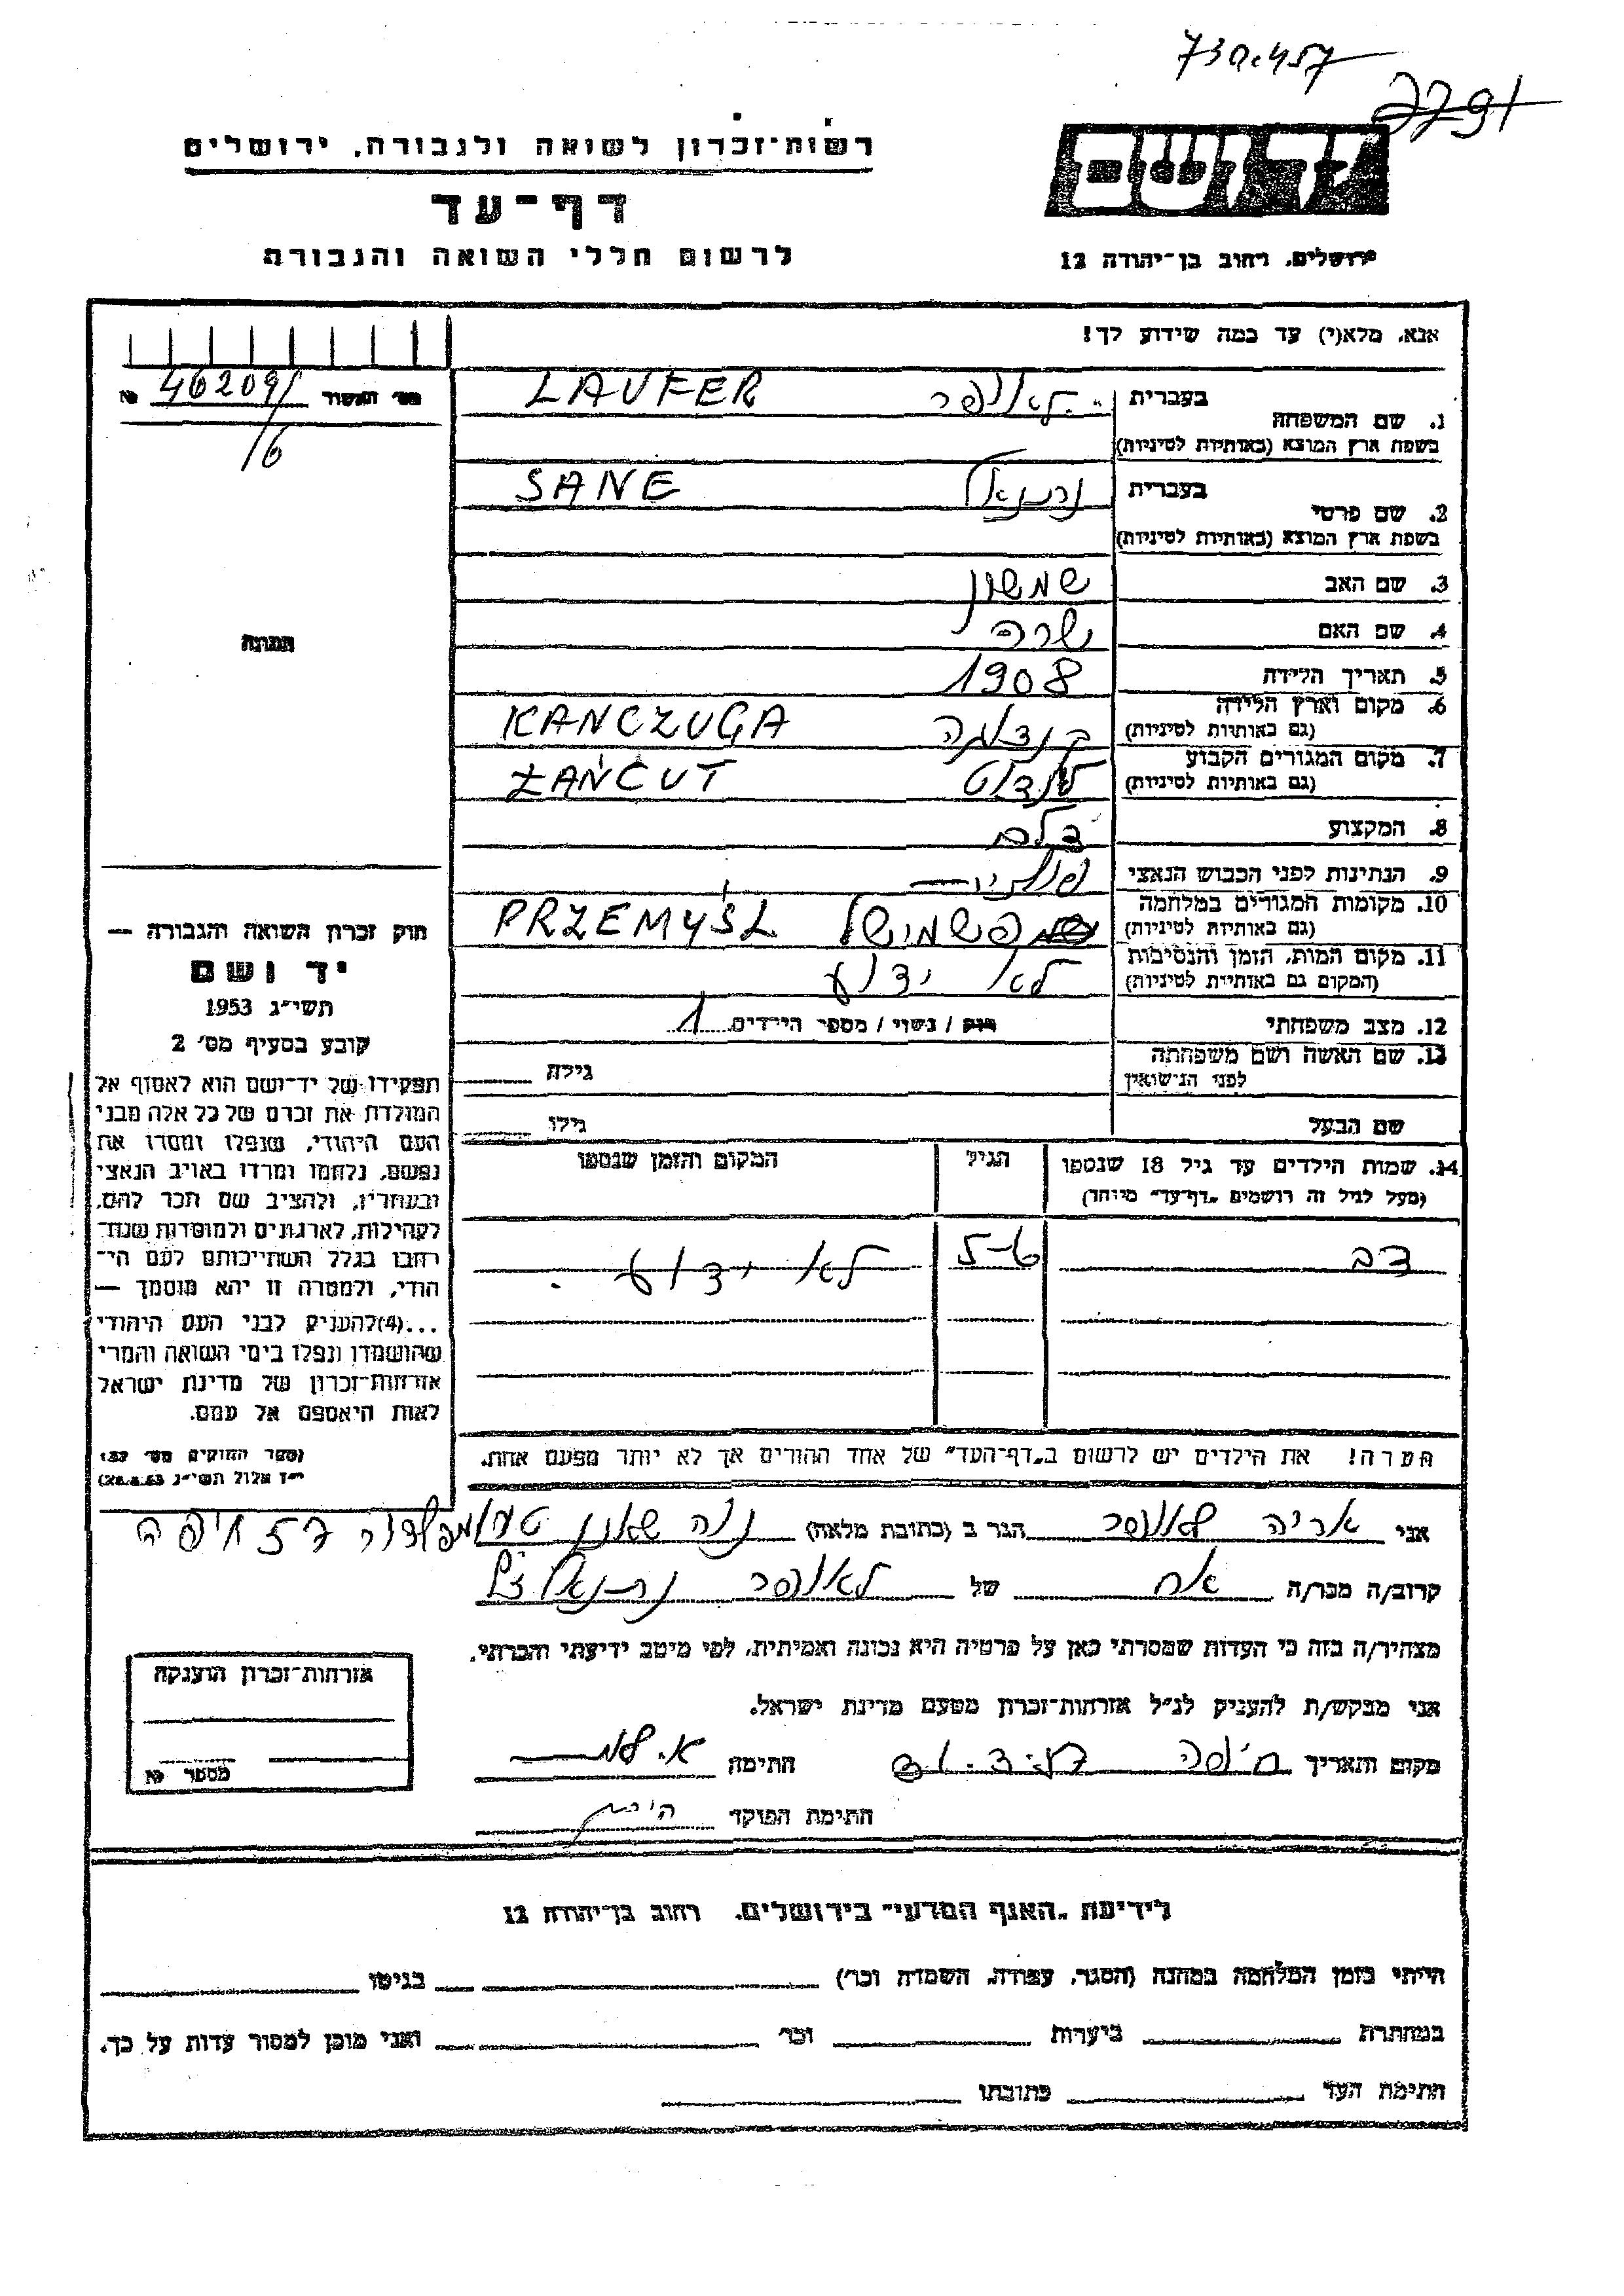 730.457
7791
רשות-זכרון לשואה ולגבורה, ירושלים
דף-עד
לרשום חללי השואה והגבורה
יד ושם
ירושלים, רחוב בן-יהודה 12
אנא, מלא(י) עד כמה שידוע לך!
מס' האשור 462091 №
/6
1. שם המשפחה
בעברית לאופר LAUFER
בשפת ארץ המוצא (באותיות לטיניות)
2. שם פרטי
בעברית SANE
בשפת ארץ המוצא (באותיות לטיניות)
3. שם האב שמשון
4. שם האם שרה
5. תאריך הלידה 1908
6. מקום וארץ הלידה קנצוגה KANCZUGA
(גם באותיות לטיניות)
7. מקום המגורים הקבוע לנצוט ŁAŃCUT
(גם באותיות לטיניות)
8. המקצוע
9. הנתינות לפני הכבוש הנאצי
10. מקומות המגורים במלחמה פשמישל PRZEMYŚL
(גם באותיות לטיניות)
11. מקום המות, הזמן והנסיבות לא ידוע
(המקום גם באותיות לטיניות)
12. מצב משפחתי רוק / נשוי / מספר הילדים 1
13. שם האשה ושם משפחתה גילה
לפני הנישואין
שם הבעל גילו
14. שמות הילדים עד גיל 18 שנספו הגיל המקום והזמן שנספו
(מעל לגיל זה רושמים "דף-עד" מיוחד)
דב לא ידוע.
הערה! את הילדים יש לרשום ב"דף-העד" של אחד ההורים אך לא יותר מפעם אחת.
תמונה
חוק זכרון השואה והגבורה —
יד ושם
תשי"ג 1953
קובע בסעיף מס' 2
תפקידו של יד-ושם הוא לאסוף אל
המולדת את זכרם של כל אלה מבני
העם היהודי, שנפלו ומסרו את
נפשם, נלחמו ומרדו באויב הנאצי
ובעוזריו, ולהציב שם וזכר להם,
לקהילות, לארגונים ולמוסדות שנח־
רבו בגלל השתייכותם לעם הי־
הודי, ולמטרה זו יהא מוסמך —
...(4)להעניק לבני העם היהודי
שהושמדו ונפלו בימי השואה והמרי
אזרחות-זכרון של מדינת ישראל
לאות היאספם אל עמם.
(ספר החוקים מס' 132
י"ז אלול תשי"ג 28.8.53)
אני אריה לאופר הגר ב (כתובת מלאה) נוה שאנן חיפה
קרוב/ה מכר/ה אח של לאופר
מצהיר/ה בזה כי העדות שמסרתי כאן על פרטיה היא נכונה ואמיתית, לפי מיטב ידיעתי והכרתי.
אני מבקש/ת להעניק לנ"ל אזרחות-זכרון מטעם מדינת ישראל.
מקום ותאריך חיפה חתימה
חתימת הפוקד
אזרחות-זכרון הוענקה
מספר №
לידיעת "האגף המדעי" בירושלים, רחוב בן-יהודה 12
הייתי בזמן המלחמה במחנה (הסגר, עבודה, השמדה וכו') בגיטו
במחתרת ביערות וכו' ואני מוכן למסור עדות על כך.
חתימת העד כתובתו